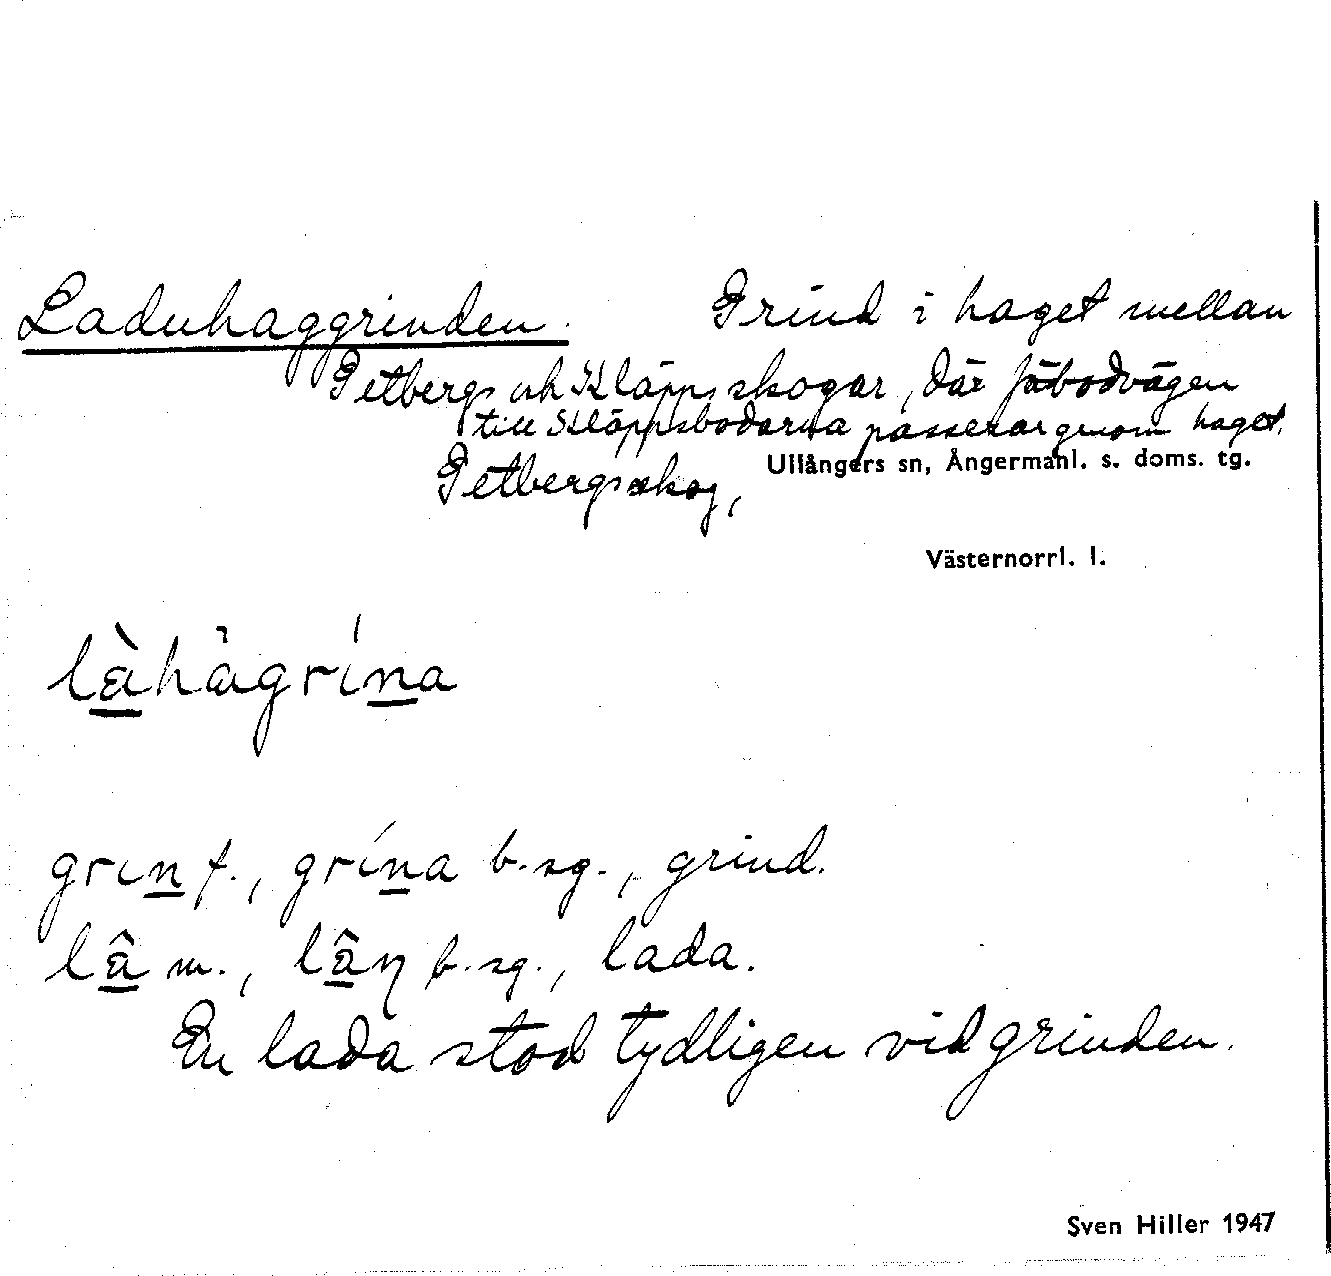 Laduhaggrinden. Grind i haget mellan
Getbergs och Kläpps skogar, där fäbodvägen
till Kläppsbodarna passerar genom haget.
Getbergs skog, Ullångers sn, Ångermanl. s. doms. tg.
Västernorrl. l.
làhàgrína
grın f., grína b.sg., grind.
lâ m., lâŋ b.sg., lada.
En lada stod tydligen vid grinden.
Sven Hiller 1947